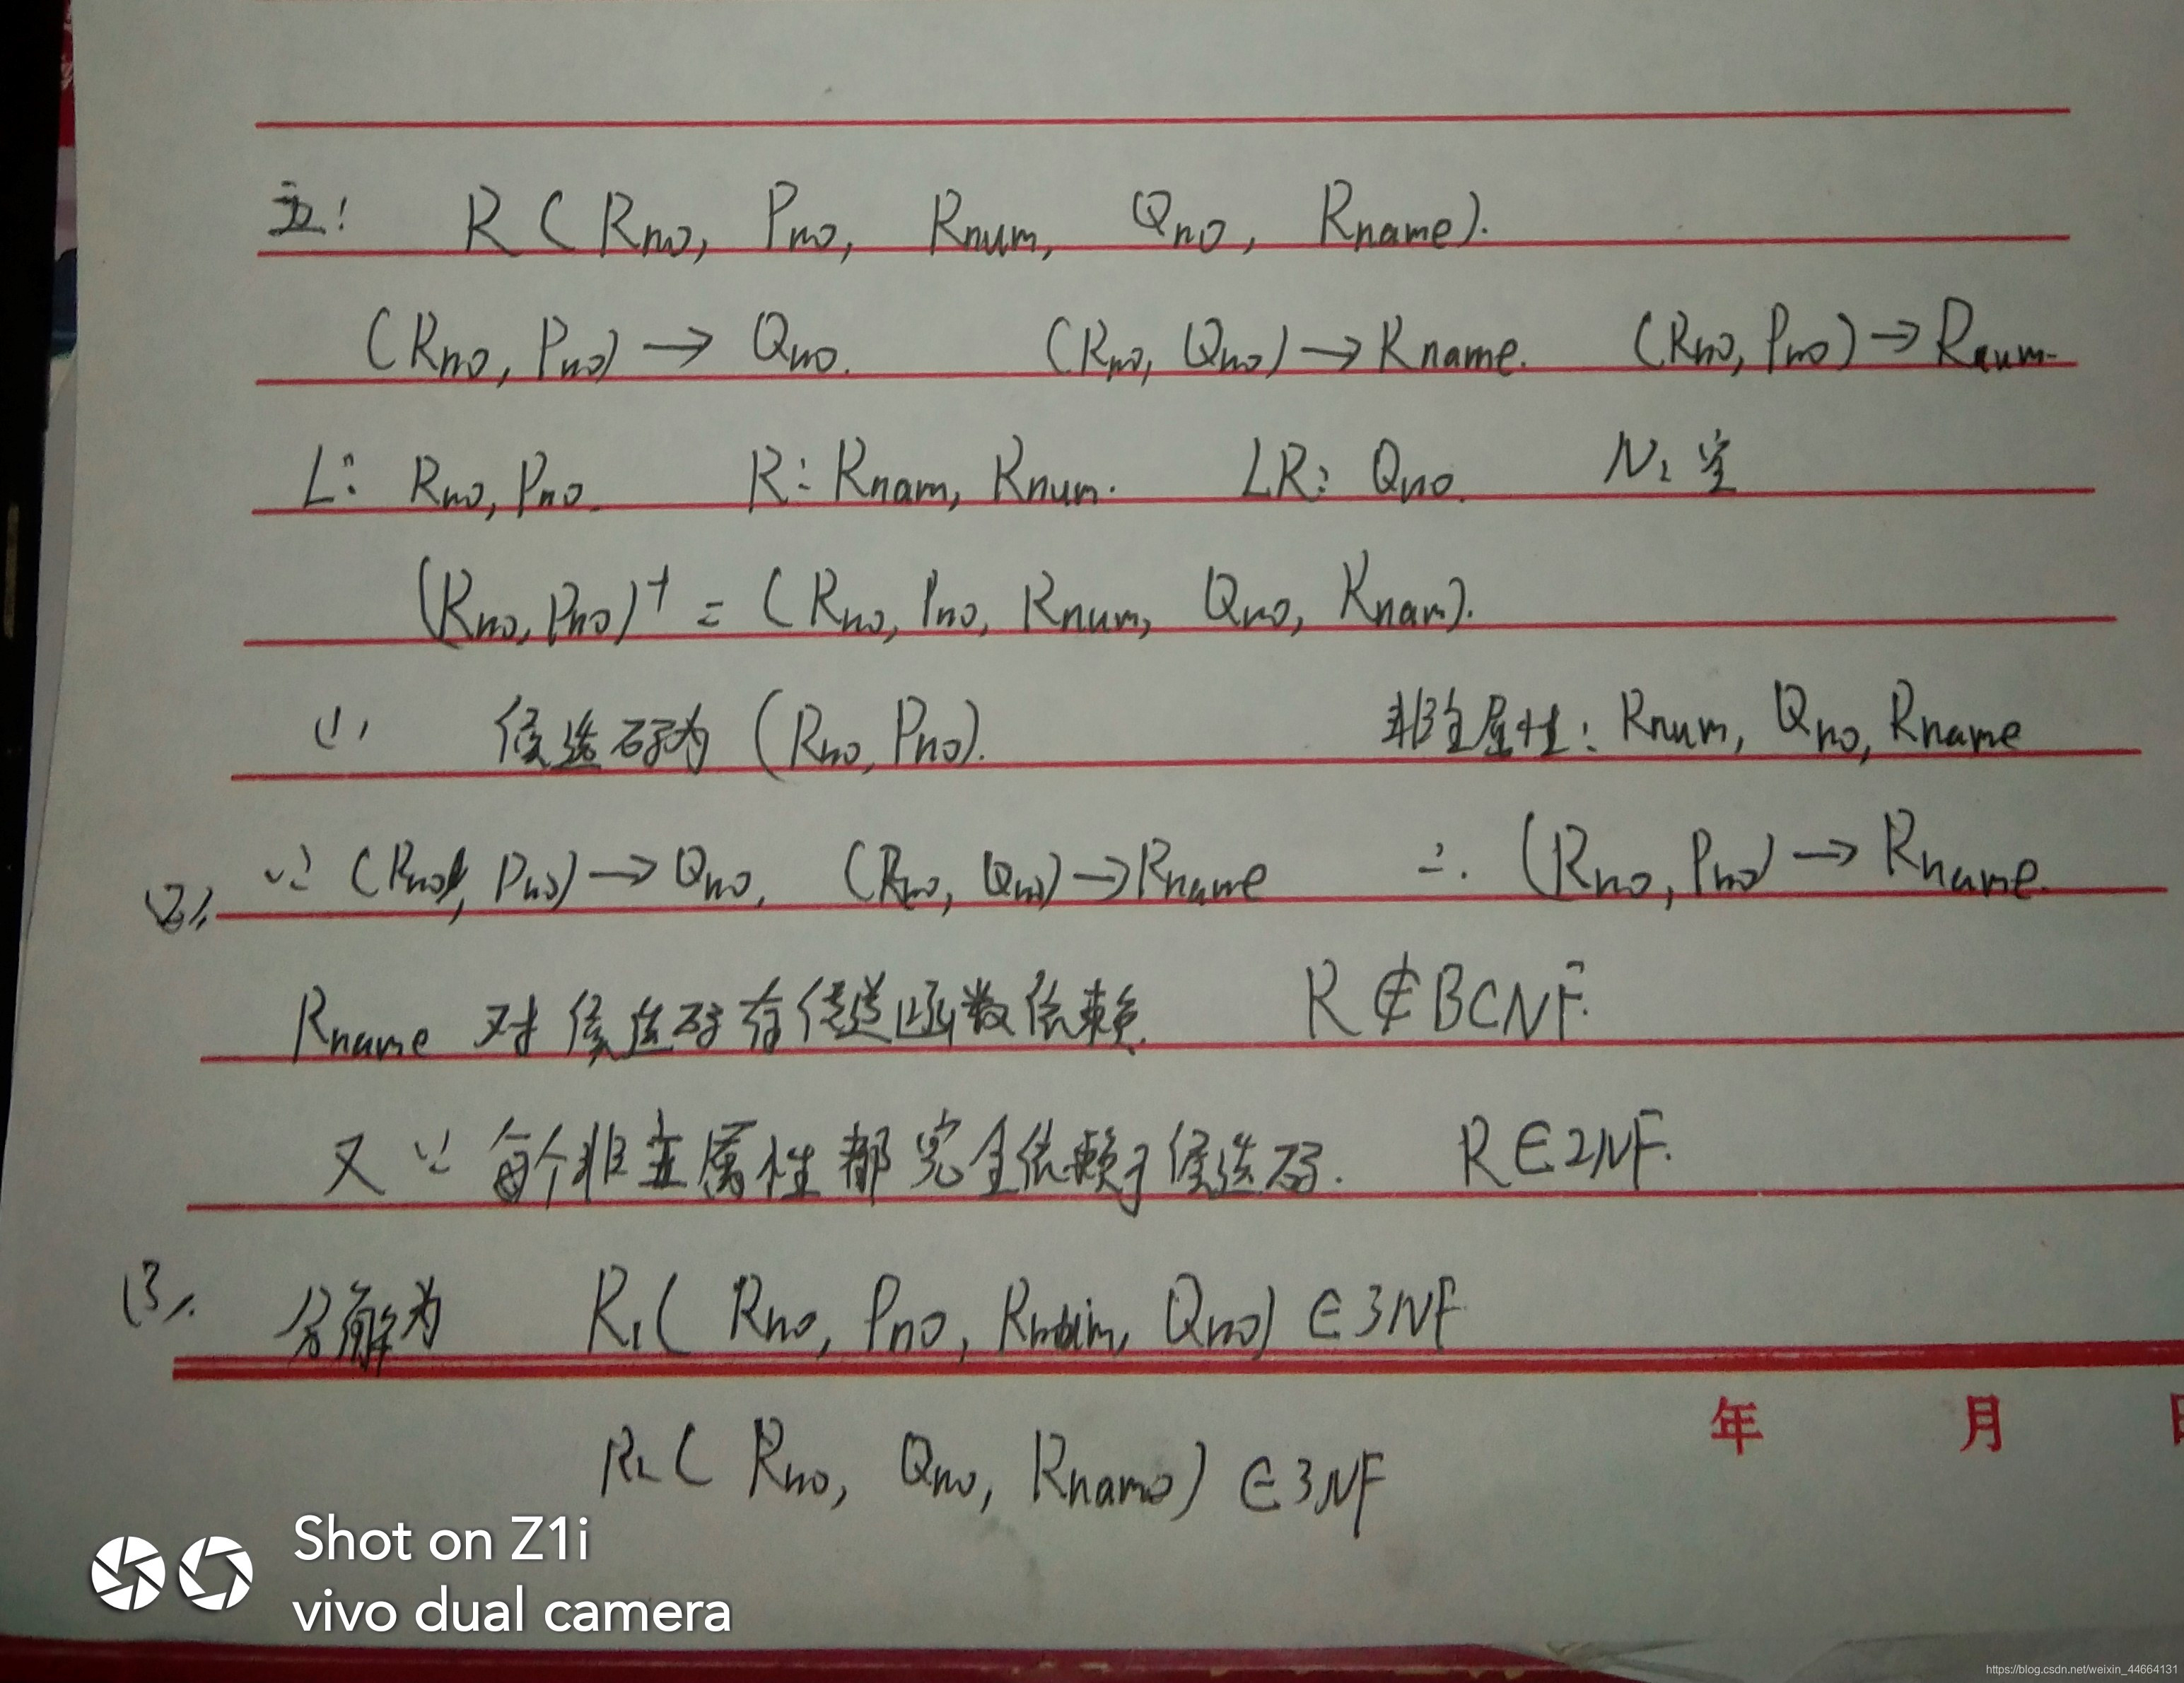 五: R ( Rno, Pno, Rnum, Qno, Rname).
(Rno, Pno) → Qno. (Rno, Qno) → Rname. (Rno, Pno) → Rnum.
L: Rno, Pno. R: Rnam, Rnum. LR: Qno. N: 空
(Rno, Pno)⁺ = ( Rno, Pno, Rnum, Qno, Rnam).
(1) 候选码为 (Rno, Pno). 非主属性: Rnum, Qno, Rname
(2). ∵ (Rno, Pno) → Qno, (Rno, Qno) → Rname ∴ (Rno, Pno) → Rname.
Rname 对候选码有传递函数依赖. R ∉ BCNF.
又 ∵ 每个非主属性都完全依赖于候选码. R ∈ 2NF.
(3). 分解为 R₁( Rno, Pno, Rnum, Qno) ∈ 3NF
年 月 日
R₂( Rno, Qno, Rname) ∈ 3NF
Shot on Z1i
vivo dual camera
https://blog.csdn.net/weixin_44664131